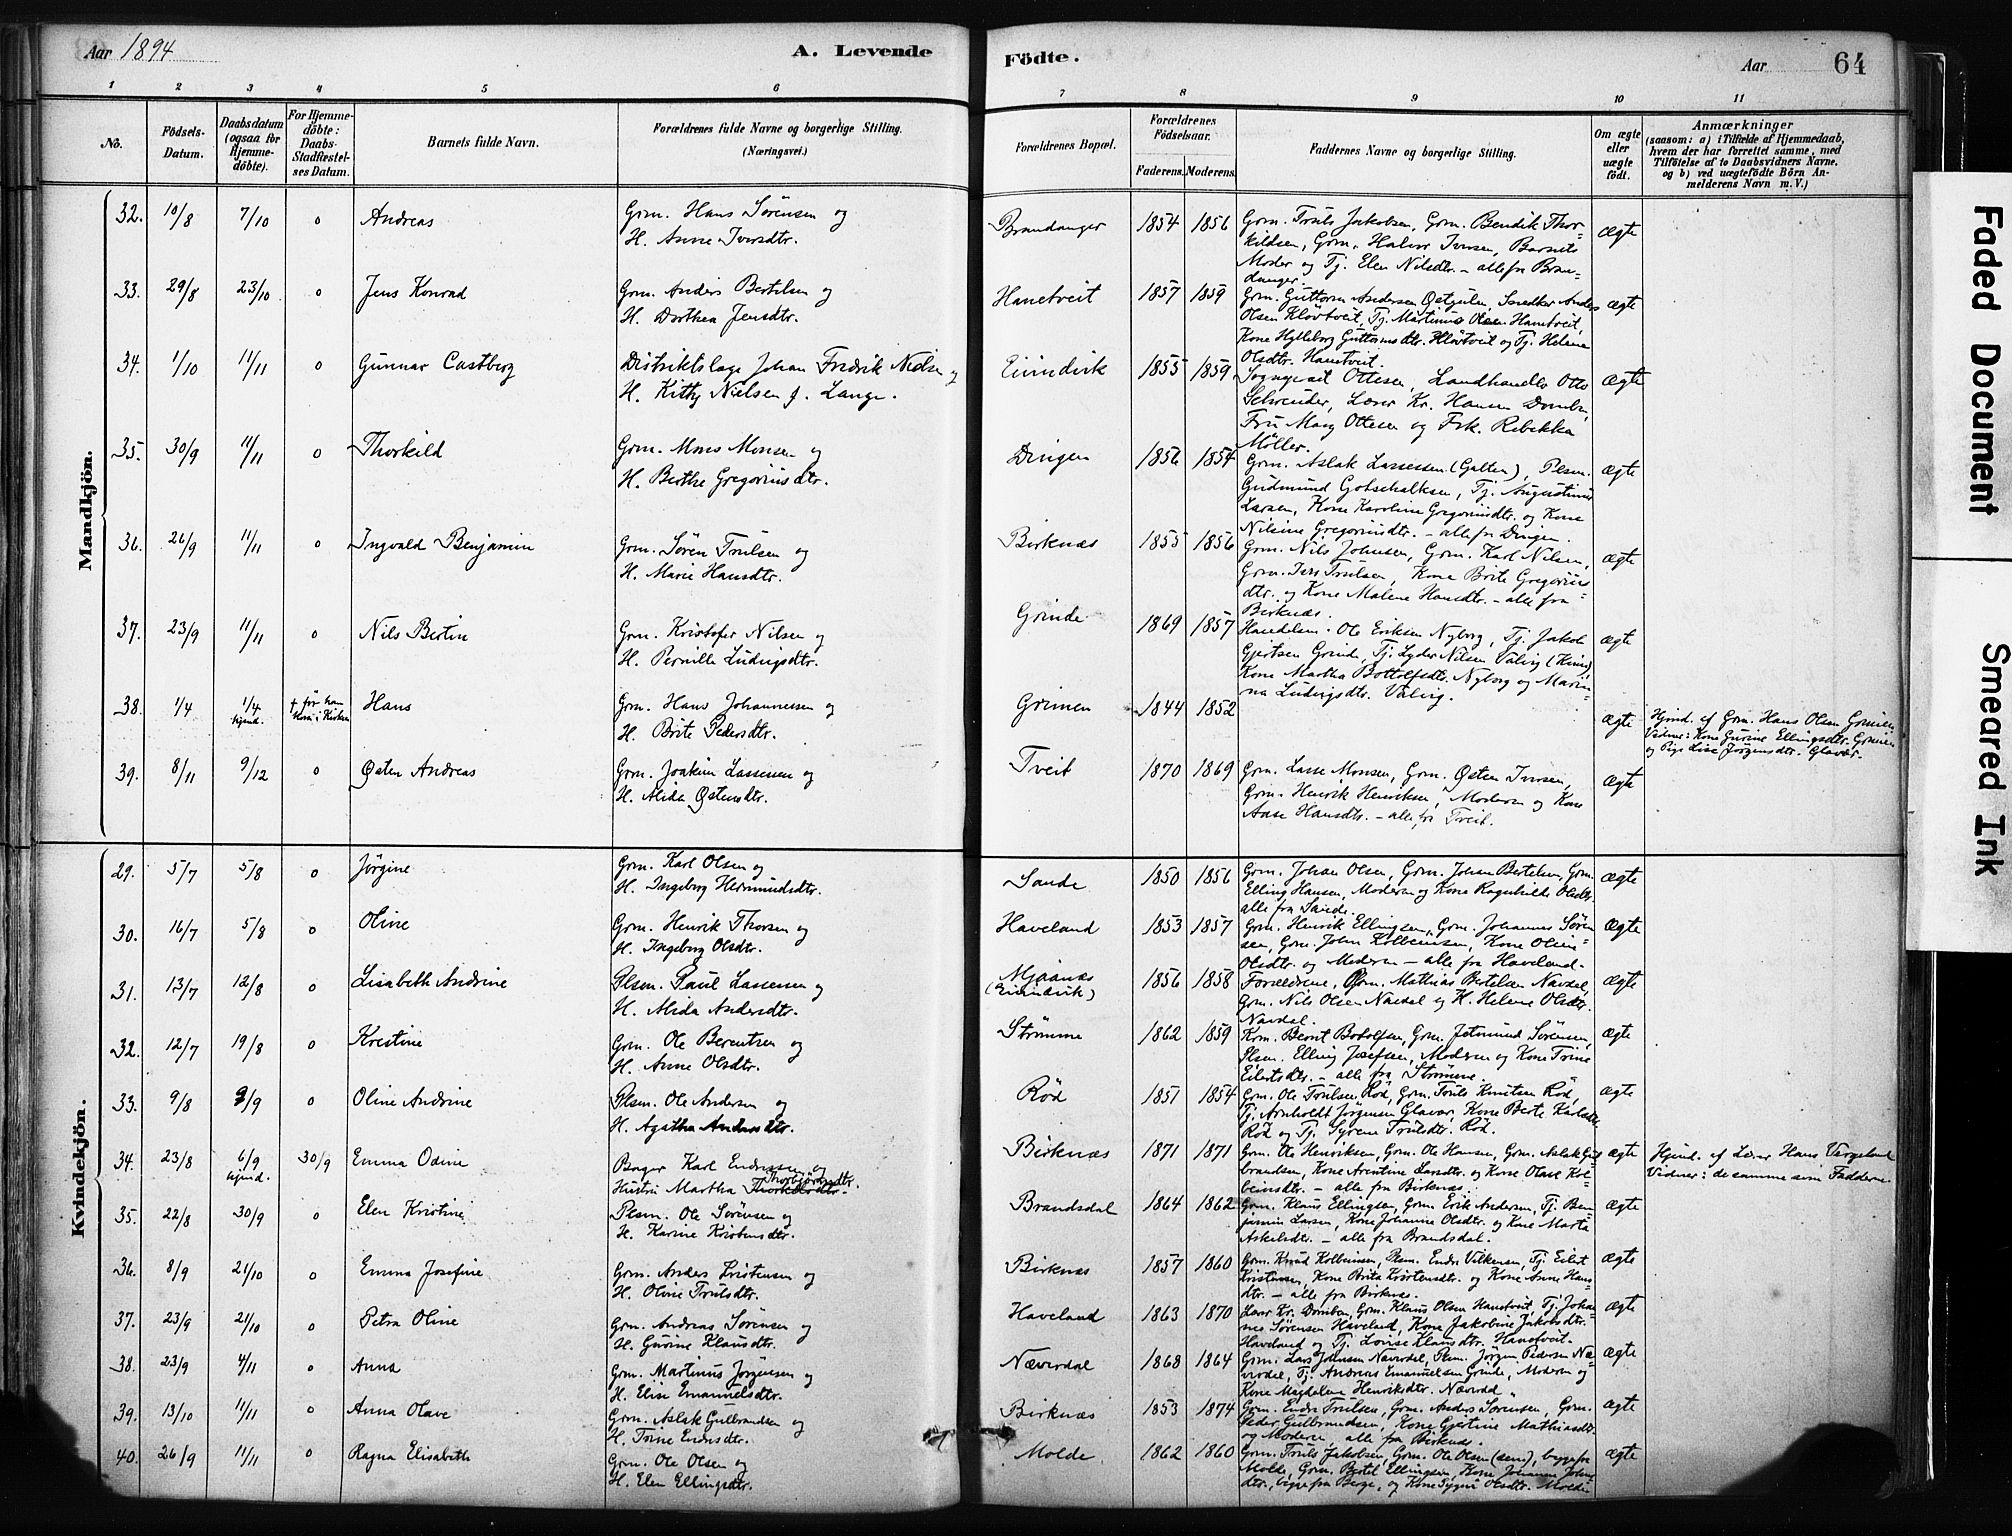 Aar 1894
A. Levende
Födte.
Aar
64
1 2 3 4 5 6 7 8 9 10 11
No.
Födsels-Datum.
Daabsdatum (ogsaa for Hjemme-döbte).
For Hjemme-döbte: Daabs-Stadfæstel-ses Datum.
Barnets fulde Navn.
Forældrenes fulde Navne og borgerlige Stilling.
(Næringsvei.)
Forældrenes Bopæl.
Forældrenes Födselsaar.
Faderens. Moderens.
Faddernes Navne og borgerlige Stilling.
Om ægte eller uægte födt.
Anmærkninger
(saasom: a) i Tilfælde af Hjemmedaab,
hvem der har forrettet samme, med
Tilföielse af to Daabsvidners Navne.
og b) ved uægtefödte Börn An-
melderens Navn m. V.)
Mandkjön.
32. 10/8 7/10 0 Andreas
Grm. Hans Sørensen og
H. Anne Iversdtr.
Brandanger 1854 1856
Grm. Truls Jakobsen, Grm. Bendik Thor-
kildsen, Grm. Halvor Iversen, Barnets
Moder og Tj. Elen Nilsdtr. - alle fra Bran-
danger.
ægte
33. 29/8 23/10 0 Jens Konrad
Grm. Anders Bertelsen og
H. Dorthea Jensdtr.
Hanetveit 1857 1859
Grm. Guttorm Andersen Østgulen, Snedker Anders
Olsen Kløvtveit, Tj. Martinus Olsen Hanetveit,
Kone Hylleborg Guttormsdtr. Kløvtveit og Tj. Helene
Olsdtr. Hanetveit.
ægte
34. 1/10 11/11 0 Gunnar Castberg
Distriktslæge Johan Fredrik Nielsen og
H. Kitty Nielsen f. Lange.
Eivindvik 1855 1859
Sogneprest Ottesen, Landhandler Otto
Schreuder, Lærer Kr. Hansen Dombu,
Fru Mary Ottesen og Frk. Rebekka
Møller.
ægte
35. 30/9 11/11 0 Thorkild
Grm. Mons Monsen og
H. Berthe Gregoriusdtr.
Dingen 1856 1854
Grm. Aslak Lassessen (Galten), Plsm.
Gudmund Gotschalksen, Tj. Augustinus
Larsen, Kone Karoline Gregoriusdtr. og Kone
Nilsine Gregoriusdtr. - alle fra Dingen.
ægte
36. 26/9 11/11 0 Ingvald Benjamin
Grm. Søren Trulsen og
H. Marie Hansdtr.
Birknæs 1855 1856
Grm. Nils Johnsen, Grm. Karl Nilsen,
Grm. Jens Trulsen, Kone Brite Gregorius-
dtr. og Kone Malene Hansdtr. - alle fra
Birknæs.
ægte
37. 23/9 11/11 0 Nils Bertin
Grm. Kristofer Nilsen og
H. Pernille Ludvigsdtr.
Grinde 1869 1857
Handelsm. Ole Eriksen Nyborg, Tj. Jakob
Gjertsen Grinde, Tj. Lyder Nilsen Valvig (Kinn),
Kone Martha Bottolfsdtr. Nyborg og Mari-
na Ludvigsdtr. Valvig.
ægte
38. 1/4 1/4 hjmd. † før han kom i Kirken Hans
Grm. Hans Johannessen og
H. Brite Pedersdtr.
Grimen 1844 1852
ægte
Hjmd. af Grm. Hans Olsen Grimen
Vidner: Kone Gurine Ellingsdtr. Grimen
og Pige Lise Jørgensdtr. Glavær.
39. 8/11 9/12 0 Østen Andreas
Grm. Joakim Lassesen og
H. Alida Østensdtr.
Tveit 1870 1869
Grm. Lasse Monsen, Grm. Østen Iversen,
Grm. Henrik Henriksen, Moderen og Kone
Aase Hansdtr. - alle fra Tveit.
ægte
Kvindekjön.
29. 5/7 5/8 0 Jørgine
Grm. Karl Olsen og
H. Ingeborg Hermundsdtr.
Sande 1850 1856
Grm. Johan Olsen, Grm. Johan Bertelsen, Grm.
Elling Hansen, Moderen og Kone Ragnhilde Olsdtr.
alle fra Sande.
ægte
30. 16/7 5/8 0 Oline
Grm. Henrik Thorsen og
H. Ingeborg Olsdtr.
Haveland 1853 1857
Grm. Henrik Ellingsen, Grm. Johannes Søren
sen, Grm. John Kolbeinsen, Kone Oline
Olsdtr. og Moderen - alle fra Haveland.
ægte
31. 13/7 12/8 0 Lisabeth Andrine
Plsm. Paul Lassesen og
H. Alida Andersdtr.
Mjaanæs (Eivindvik) 1856 1858
Forældrene, Grm. Mathias Bertelsen Navdal,
Grm. Nils Olsen Navdal og H. Helene Olsdtr.
Navdal.
ægte
32. 12/7 19/8 0 Kristine
Grm. Ole Berentsen og
H. Anne Olsdtr.
Strømme 1862 1859
Grm. Bernt Botolfsen, Grm. Jetmund Sørensen,
Plsm. Elling Josefsen, Moderen og Kone Trine
Eilertsdtr. - alle fra Strømme.
ægte
33. 9/8 9/9 0 Oline Andrine
Plsm. Ole Andersen og
H. Agatha Andersdtr.
Röd 1851 1854
Grm. Ole Trulsen Röd, Grm. Truls Knutsen Röd,
Tj. Arnholdt Jørgensen Glavær, Kone Berte Karlsdtr.
Röd og Tj. Syrene Trulsdtr. Röd.
ægte
34. 23/8 6/9 hjmd. 30/9 Emma Odine
Bager Karl Endresen og
Hustru Martha Thorbjørnsdtr.
Birknæs 1871 1871
Grm. Ole Henriksen, Grm. Ole Hansen, Grm. Aslak Gul
brandsen, Kone Arentine Larsdtr. og Kone Olave Kol-
beinsdtr. - alle fra Birknæs.
ægte
Hjmd. af Lærer Hans Vergeland
Vidner: de samme som Fadderne
35. 22/8 30/9 0 Elen Kristine
Plsm. Ole Sørensen og
H. Karine Kristensdtr.
Brandsdal 1864 1862
Grm. Klaus Ellingsen, Grm. Erik Andersen, Tj. Ben-
jamin Larsen, Kone Johanne Olsdtr. og Kone Marta
Askelsdtr. - alle fra Brandsdal.
ægte
36. 8/9 21/10 0 Emma Josefine
Grm. Anders Kristensen og
H. Oline Trulsdtr.
Birknæs 1857 1860
Grm. Knud Kolbeinsen, Plsm. Endre Vilkensen, Tj. Eilert
Kristensen, Kone Brita Kristensdtr. og Kone Anne Hans
dtr. - alle fra Birknæs.
ægte
37. 23/9 21/10 0 Petra Oline
Grm. Andreas Sørensen og
H. Gurine Klausdtr.
Haveland 1863 1870
Lærer Kr. Dombu, Grm. Klaus Olsen Hanetveit, Tj. Johan
nes Sørensen Haveland, Kone Jakobine Jakobsdtr.
Haveland og Tj. Lovise Klausdtr. Hanetveit.
ægte
38. 23/9 4/11 0 Anna
Grm. Martinus Jørgensen og
H. Elise Emanuelsdtr.
Nævrdal 1868 1864
Grm. Lars Johnsen Nævrdal, Plsm. Jørgen Pedersen Næ-
vrdal, Tj. Andreas Emanuelsen Grinde, Moderen og
Kone Magdalena Henriksdtr. Nævrdal.
ægte
39. 13/10 11/11 0 Anna Olave
Grm. Aslak Gulbrandsen og
H. Trine Endresdtr.
Birknæs 1853 1874
Grm. Endre Trulsen, Grm. Anders Sørensen, Grm.
Peder Gulbrandsen, Kone Gjertine Mathiasdtr.
og Moderen alle fra Birknæs.
ægte
40. 26/9 11/11 0 Ragna Elisabeth
Grm. Ole Olsen og
H. Elen Ellingsdtr.
Molde 1862 1860
Grm. Truls Jakobsen, Grm. Ole Olsen (sen), begge fra
Molde, Grm. Bertel Ellingsen, Kone Johanne Johns
dtr., begge fra Berge, og Kone Sygni Olsdtr. Molde
ægte
Faded Document
Smeared Ink